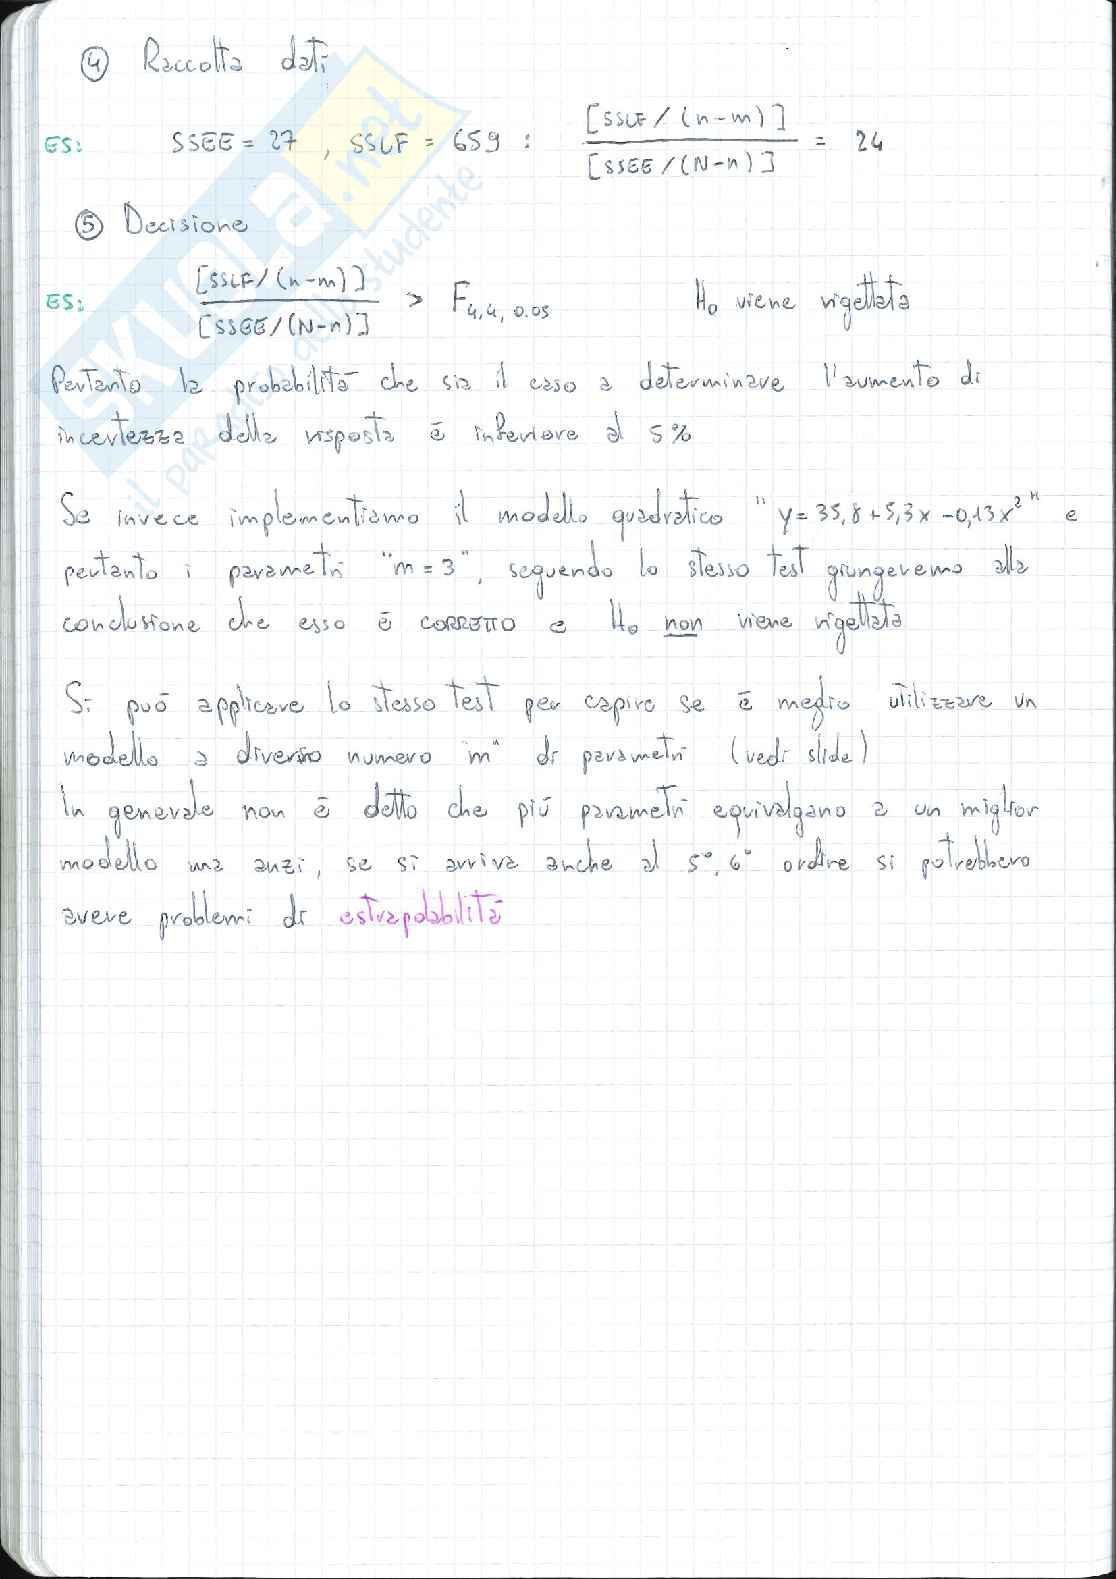 ④ Raccolta dati
ES: SSEE = 27 , SSLF = 659 : [SSLF / (n-m)] / [SSEE / (N-n)] = 24
⑤ Decisione
ES: [SSLF / (n-m)] / [SSEE / (N-n)] > F4,4, 0.05 H0 viene rigettata
Pertanto la probabilità che sia il caso a determinare l'aumento di
incertezza della risposta è inferiore al 5%
Se invece implementiamo il modello quadratico "y = 35,8 + 5,3x - 0,13x²" e
pertanto i parametri "m = 3", seguendo lo stesso test giungeremo alla
conclusione che esso è CORRETTO e H0 non viene rigettata
Si può applicare lo stesso test per capire se è meglio utilizzare un
modello a diverso numero "m" di parametri (vedi slide)
In generale non è detto che più parametri equivalgano a un miglior
modello ma anzi, se si arriva anche al 5°, 6° ordine si potrebbero
avere problemi di estrapolabilità
SKUOLA.net
il paradiso dello studente